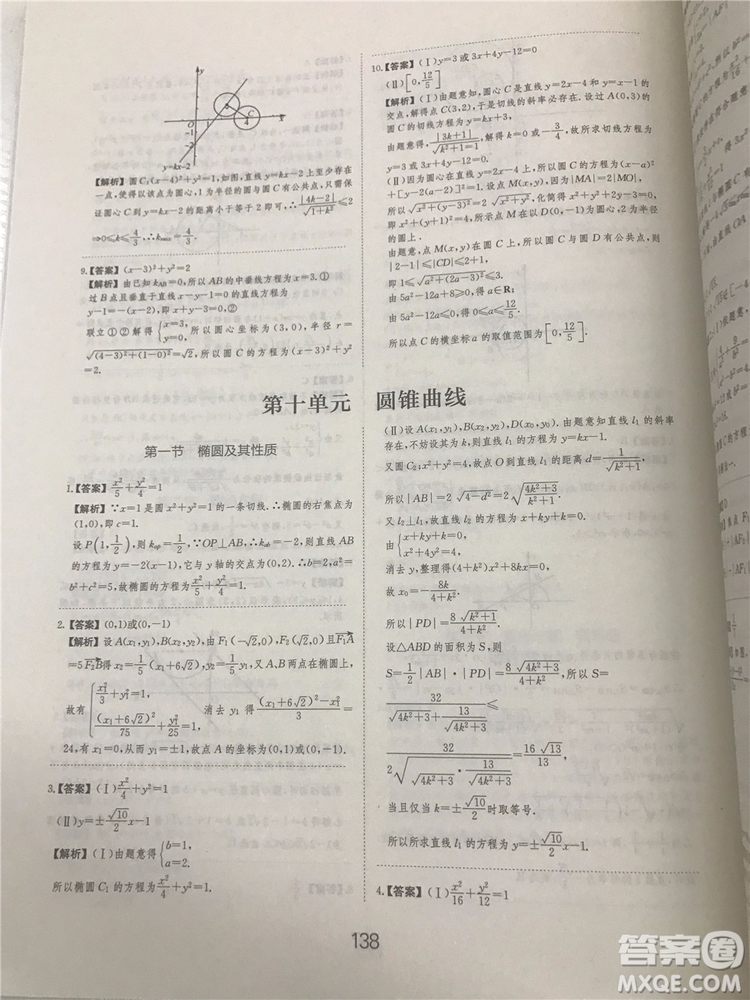 y
O
1
4
x
-1
-2
y=kx-2
【解析】圆C:(x-4)²+y²=1,如图,直线y=kx-2上至少存在
一点,使得以该点为圆心,1为半径的圆与圆C有公共点,只需保
证圆心C到y=kx-2的距离小于等于2即可,∴|4k-2|/√(1+k²)≤2
⇒0≤k≤4/3,∴k_max=4/3.
9.【答案】(x-3)²+y²=2
【解析】由已知k_AB=0,所以AB的中垂线方程为x=3.①
过B点且垂直于直线x-y-1=0的直线方程为
y-1=-(x-2),即x+y-3=0,②
联立①②解得{x=3, y=0,所以圆心坐标为(3,0),半径r=
√((4-3)²+(1-0)²)=√2,所以圆C的方程为(x-3)²+y²
=2.
10.【答案】(Ⅰ)y=3或3x+4y-12=0
(Ⅱ)[0,12/5]
【解析】(Ⅰ)由题意知,圆心C是直线y=2x-4和y=x-1的
交点,解得点C(3,2),于是切线的斜率必存在.设过A(0,3)的
圆C的切线方程为y=kx+3,
由题意得,|3k+1|/√(k²+1)=1,解得k=0或-3/4,故所求切线方程为
y=3或3x+4y-12=0.
(Ⅱ)因为圆心在直线y=2x-4上,所以圆C的方程为(x-a)²
+[y-2(a-2)]²=1.设点M(x,y),因为|MA|=2|MO|,
所以√(x²+(y-3)²)=2√(x²+y²),化简得x²+y²+2y-3=
0,即x²+(y+1)²=4,所以点M在以D(0,-1)为圆心,2为半径
的圆上.
由题意,点M(x,y)在圆C上,所以圆C与圆D有公共点,则
|2-1|≤|CD|≤2+1,
即1≤√(a²+(2a-3)²)≤3.
由5a²-12a+8≥0,得a∈R;
由5a²-12a≤0,得0≤a≤12/5.
所以点C的横坐标a的取值范围为[0,12/5].
第十单元 圆锥曲线
第一节 椭圆及其性质
1.【答案】x²/5+y²/4=1
【解析】∵x=1是圆x²+y²=1的一条切线.∴椭圆的右焦点为
(1,0),即c=1.
设P(1,1/2),则k_OP=1/2,∵OP⊥AB,∴k_AB=-2,则直线AB
的方程为y=-2(x-1),它与y轴的交点为(0,2).∴b=2,a²=
b²+c²=5,故椭圆的方程为x²/5+y²/4=1.
2.【答案】(0,1)或(0,-1)
【解析】设A(x₁,y₁),B(x₂,y₂),由F₁(-√2,0),F₂(√2,0)且F₁A
=5F₂B得x₂=1/5(x₁+6√2),y₂=1/5y₁,又A,B两点在椭圆上,
故有{x₁²/3+y₁²=1, (x₁+6√2)²/75+y₁²/25=1,消去y₁得(x₁+6√2)²-x₁²/3=
24,有x₁=0,从而y₁=±1,故点A的坐标为(0,1)或(0,-1).
3.【答案】(Ⅰ)x²/4+y²=1
(Ⅱ)y=±√10/2x-1
【解析】(Ⅰ)由题意得{b=1, a=2.
所以椭圆C₁的方程为x²/4+y²=1.
(Ⅱ)设A(x₁,y₁),B(x₂,y₂),D(x₀,y₀).由题意知直线l₁的斜率
存在,不妨设其为k,则直线l₁的方程为y=kx-1.
又圆C₂:x²+y²=4,故点O到直线l₁的距离d=1/√(k²+1),
所以|AB|=2√(4-d²)=2√((4k²+3)/(k²+1)).
又l₂⊥l₁,故直线l₂的方程为x+ky+k=0.
由{x+ky+k=0, x²+4y²=4.
消去y,整理得(4+k²)x²+8kx=0,
故x₀=-8k/(4+k²).
所以|PD|=8√(k²+1)/(4+k²).
设△ABD的面积为S,则
S=1/2|AB|·|PD|=8√(4k²+3)/(4+k²),所以S=
32/(√(4k²+3)+13/√(4k²+3))≤
32/(2√(√(4k²+3)·13/√(4k²+3)))=16√13/13,
当且仅当k=±√10/2时取等号.
所以所求直线l₁的方程为y=±√10/2x-1.
4.【答案】(Ⅰ)x²/16+y²/12=1
138
答案圈
MXQE.COM